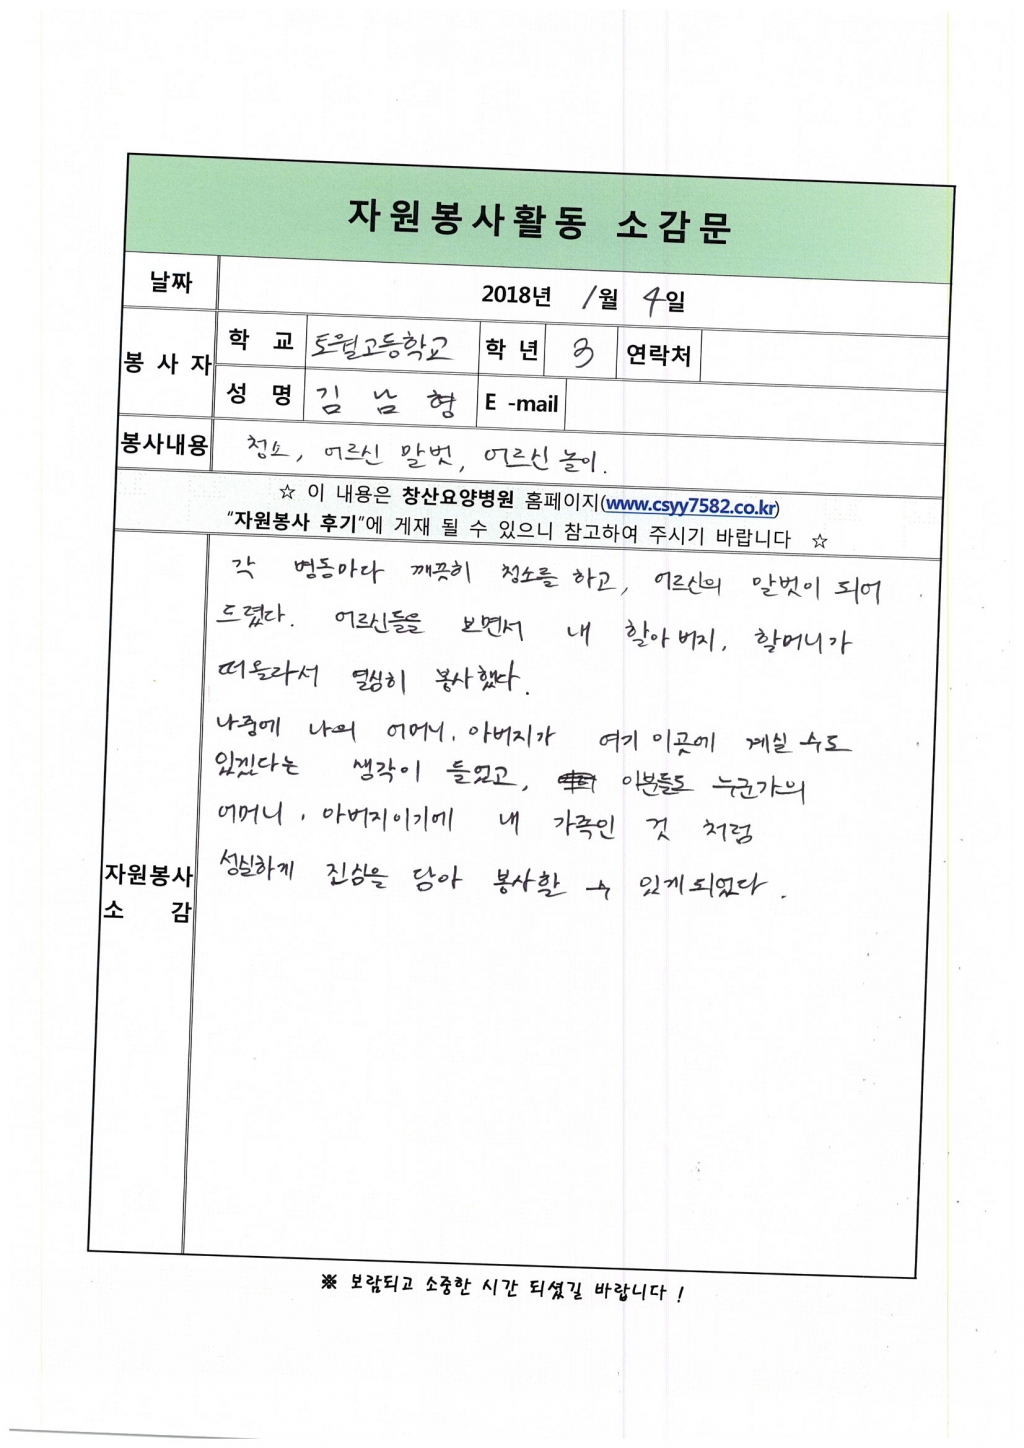 자원봉사활동 소감문
날짜 2018년 1월 4일
봉 사 자 학 교 토월고등학교 학 년 3 연락처
성 명 김 남 형 E -mail
봉사내용 청소, 어르신 말벗, 어르신 놀이.
☆ 이 내용은 창산요양병원 홈페이지(www.csyy7582.co.kr)
“자원봉사 후기”에 게재 될 수 있으니 참고하여 주시기 바랍니다 ☆
각 병동마다 깨끗히 청소를 하고, 어르신의 말벗이 되어
드렸다. 어르신들을 보면서 내 할아버지, 할머니가
떠올라서 열심히 봉사했다.
나중에 나의 어머니, 아버지가 여기 이곳에 계실 수도
있겠다는 생각이 들었고, 이분들도 누군가의
어머니, 아버지이기에 내 가족인 것 처럼
성실하게 진심을 담아 봉사할 수 있게되었다.
자원봉사
소 감
※ 보람되고 소중한 시간 되셨길 바랍니다 !